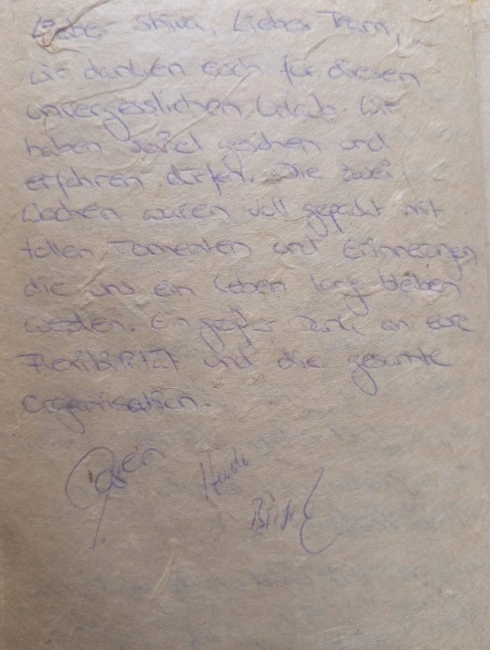 Lieber Shiva, Liebes Team,
wir danken euch für diesen
unvergesslichen Urlaub. Wir
haben soviel gesehen und
erfahren dürfen. Die zwei
Wochen waren voll gepackt mit
tollen Momenten und Erinnerungen
die uns ein Leben lang bleiben
werden. Ein großer Dank an eure
Flexibilität und die gesamte
Organisation.